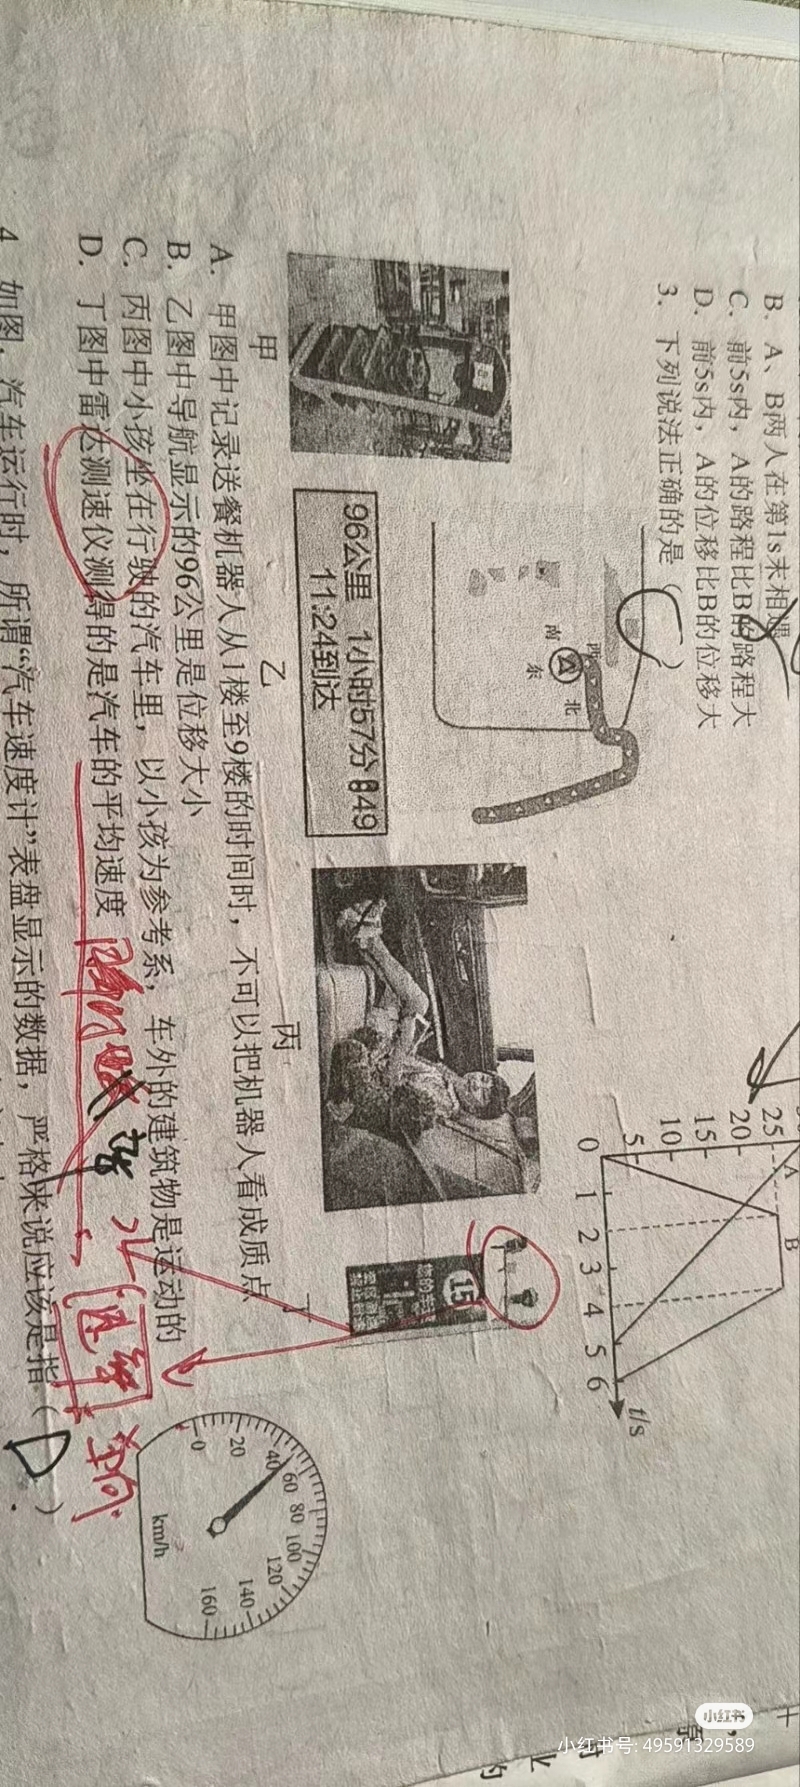 B. A、B两人在第1s末相遇
C. 前5s内，A的路程比B的路程大
D. 前5s内，A的位移比B的位移大
3. 下列说法正确的是（C）
25
20
15
10
5
0 1 2 3 4 5 6 t/s
A
B
西
南
北
东
96公里 1小时57分
11:24到达
15
甲
乙
丙
丁
A. 甲图中记录送餐机器人从1楼至9楼的时间时，不可以把机器人看成质点
B. 乙图中导航显示的96公里是位移大小
C. 丙图中小孩坐在行驶的汽车里，以小孩为参考系，车外的建筑物是运动的
D. 丁图中雷达测速仪测得的是汽车的平均速度
4. 如图，汽车运行时，所谓“汽车速度计”表盘显示的数据，严格来说应该是指（D）
0 20 40 60 80 100 120 140 160
km/h
小红书
小红书号: 49591329589